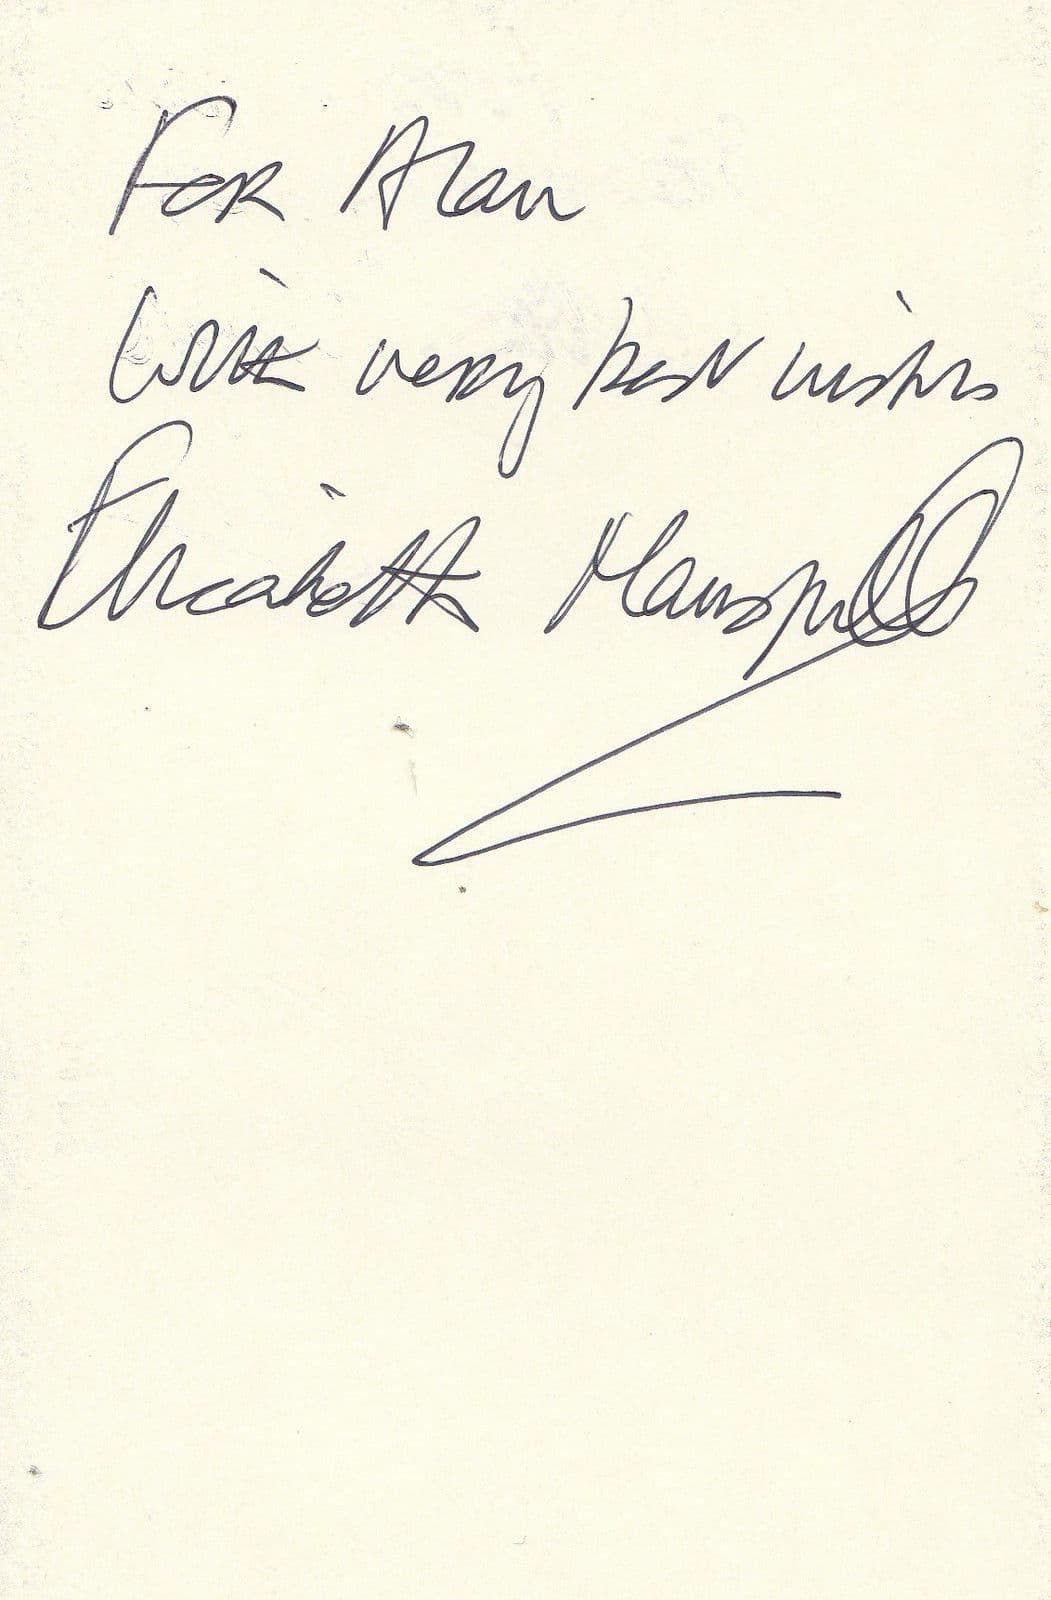 For Alan
With very best wishes
Elizabeth Mansfield